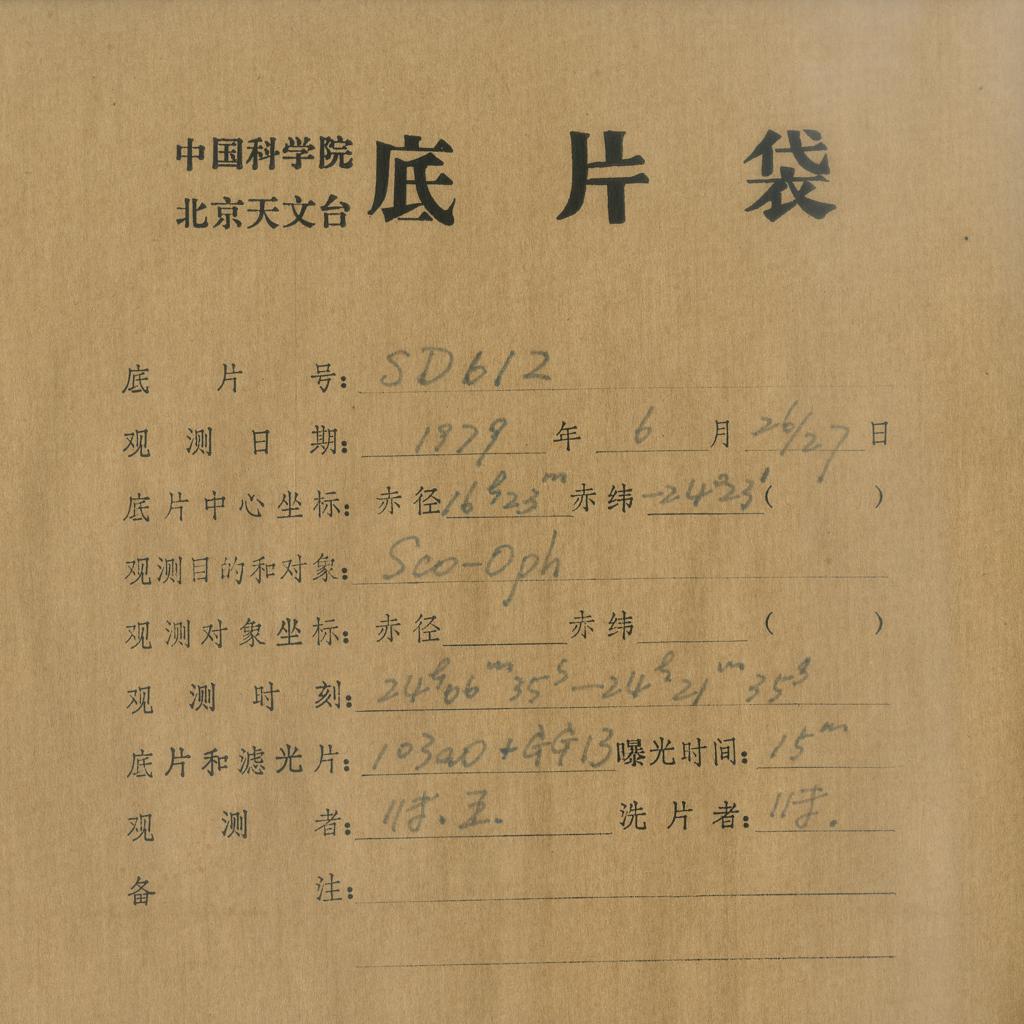 中国科学院
北京天文台
底片袋
底片号: SD612
观测日期: 1979 年 6 月 26/27 日
底片中心坐标: 赤径 16h23m 赤纬 -24°23′ ( )
观测目的和对象: Sco-Oph
观测对象坐标: 赤径 赤纬 ( )
观测时刻: 24h06m35s—24h21m35s
底片和滤光片: 103aO + GG13 曝光时间: 15m
观测者: 王.
洗片者:
备注: